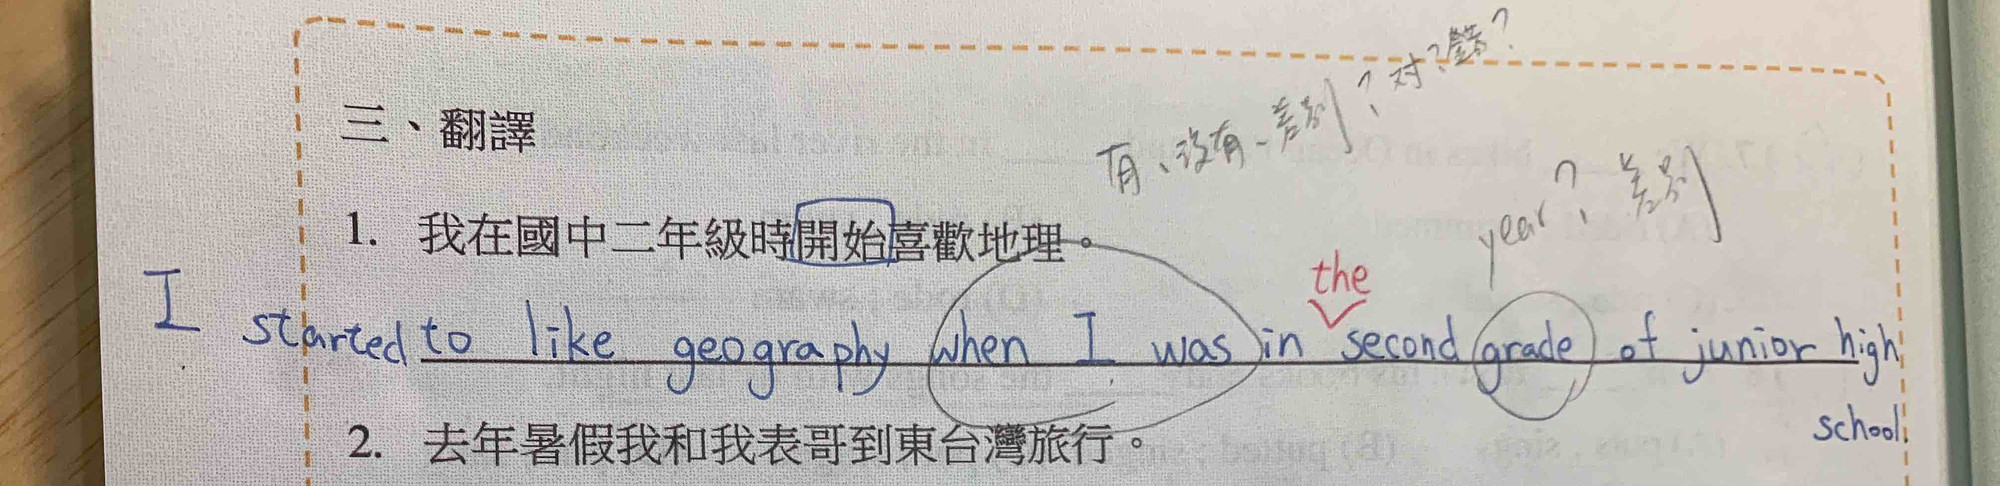 三、翻譯
有、沒有-差別?、對?錯?
1. 我在國中二年級時開始喜歡地理。
year?、差別
the
I started to like geography when I was in second grade of junior high
school.
2. 去年暑假我和我表哥到東台灣旅行。